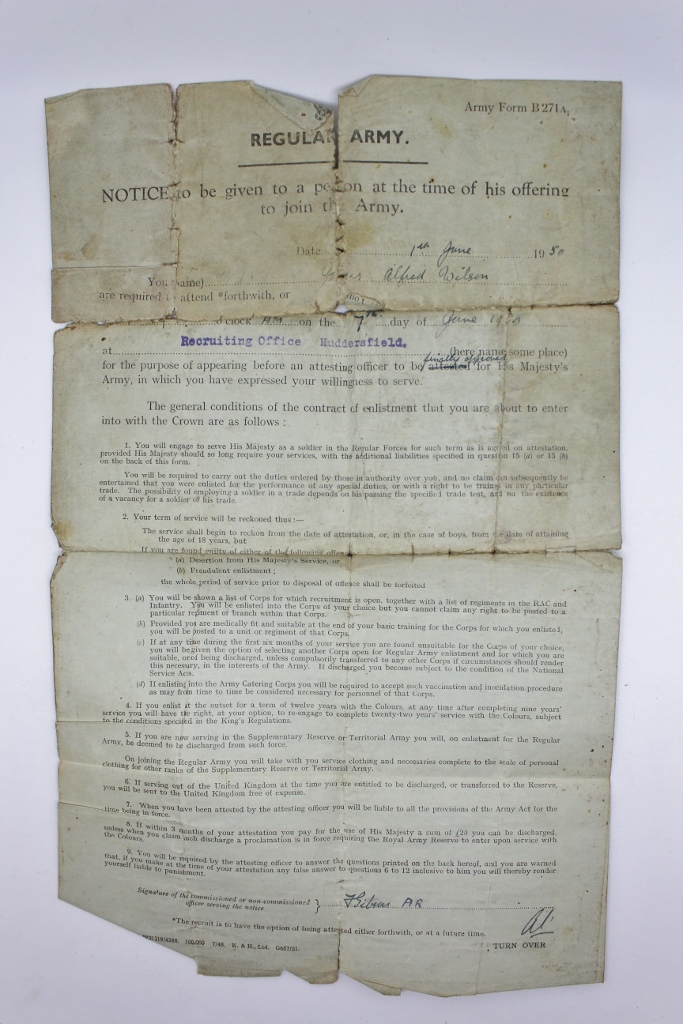 Army Form B 271A.
REGULAR ARMY.
NOTICE to be given to a person at the time of his offering
to join the Army.
Date 1st June 1950
You (name) Alfred Wilson
are required to attend *forthwith, or
o'clock AM on the 7th day of June 1950
Recruiting Office Huddersfield.
at (here name some place)
finally approved
for the purpose of appearing before an attesting officer to be attested for His Majesty's
Army, in which you have expressed your willingness to serve.
The general conditions of the contract of enlistment that you are about to enter
into with the Crown are as follows:
1. You will engage to serve His Majesty as a soldier in the Regular Forces for such term as is agreed on attestation,
provided His Majesty should so long require your services, with the additional liabilities specified in question 15 (a) or 15 (b)
on the back of this form.
You will be required to carry out the duties ordered by those in authority over you, and no claim can subsequently be
entertained that you were enlisted for the performance of any special duties, or with a right to be trained in any particular
trade. The possibility of employing a soldier in a trade depends on his passing the specified trade test, and on the existence
of a vacancy for a soldier of his trade.
2. Your term of service will be reckoned thus:—
The service shall begin to reckon from the date of attestation, or, in the case of boys, from the date of attaining
the age of 18 years, but
If you are found guilty of either of the following
(a) Desertion from His Majesty's Service, or
(b) Fraudulent enlistment;
the whole period of service prior to disposal of offence shall be forfeited
3. (a) You will be shown a list of Corps for which recruitment is open, together with a list of regiments in the RAC and
Infantry. You will be enlisted into the Corps of your choice but you cannot claim any right to be posted to a
particular regiment or branch within that Corps.
(b) Provided you are medically fit and suitable at the end of your basic training for the Corps for which you enlisted,
you will be posted to a unit or regiment of that Corps.
(c) If at any time during the first six months of your service you are found unsuitable for the Corps of your choice,
you will be given the option of selecting another Corps open for Regular Army enlistment and for which you are
suitable, or of being discharged, unless compulsorily transferred to any other Corps if circumstances should render
this necessary, in the interests of the Army. If discharged you become subject to the condition of the National
Service Acts.
(d) If enlisting into the Army Catering Corps you will be required to accept such vaccination and inoculation procedure
as may from time to time be considered necessary for personnel of that Corps.
4. If you enlist at the outset for a term of twelve years with the Colours, at any time after completing nine years'
service you will have the right, at your option, to re-engage to complete twenty-two years' service with the Colours, subject
to the conditions specified in the King's Regulations.
5. If you are now serving in the Supplementary Reserve or Territorial Army you will, on enlistment for the Regular
Army, be deemed to be discharged from such force.
On joining the Regular Army you will take with you service clothing and necessaries complete to the scale of personal
clothing for other ranks of the Supplementary Reserve or Territorial Army.
6. If serving out of the United Kingdom at the time you are entitled to be discharged, or transferred to the Reserve,
you will be sent to the United Kingdom free of expense.
7. When you have been attested by the attesting officer you will be liable to all the provisions of the Army Act for the
time being in force.
8. If within 3 months of your attestation you pay for the use of His Majesty a sum of £20 you can be discharged,
unless when you claim such discharge a proclamation is in force requiring the Royal Army Reserve to enter upon service with
the Colours.
9. You will be required by the attesting officer to answer the questions printed on the back hereof, and you are warned
that, if you make at the time of your attestation any false answer to questions 6 to 12 inclusive to him you will thereby render
yourself liable to punishment.
Signature of the commissioned or non-commissioned
officer serving the notice }
*The recruit is to have the option of being attested either forthwith, or at a future time.
100,000 7/48. K. & H., Ltd.
TURN OVER